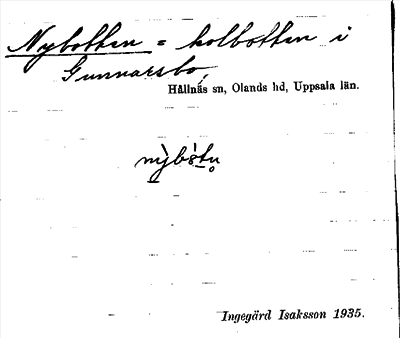 Nybotten = kolbotten i
Gunnarsbo,
Hållnäs sn, Olands hd, Uppsala län.
Ingegärd Isaksson 1935.